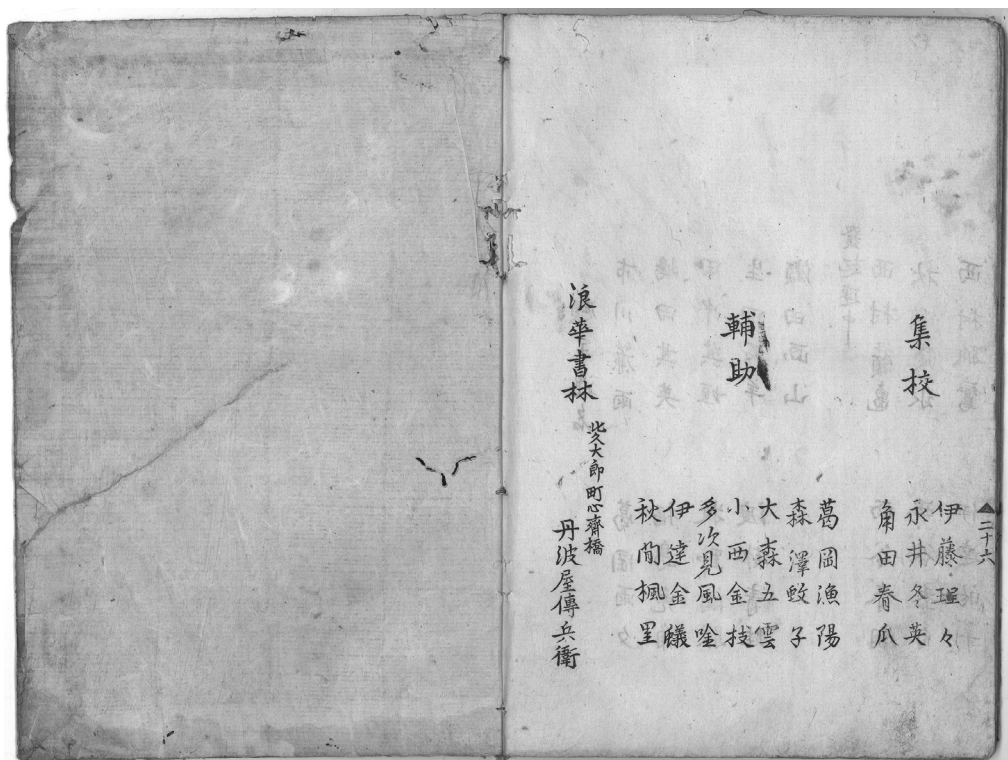 ▲二十六
集挍
伊藤瑥々
永井冬英
角田春爪
輔助
葛岡漁陽
森澤蛟子
大森五雲
小西金技
多次見風唫
伊達金蟻
秋間楓里
浪華書林
北久太郎町心齊橋
丹波屋傳兵衛